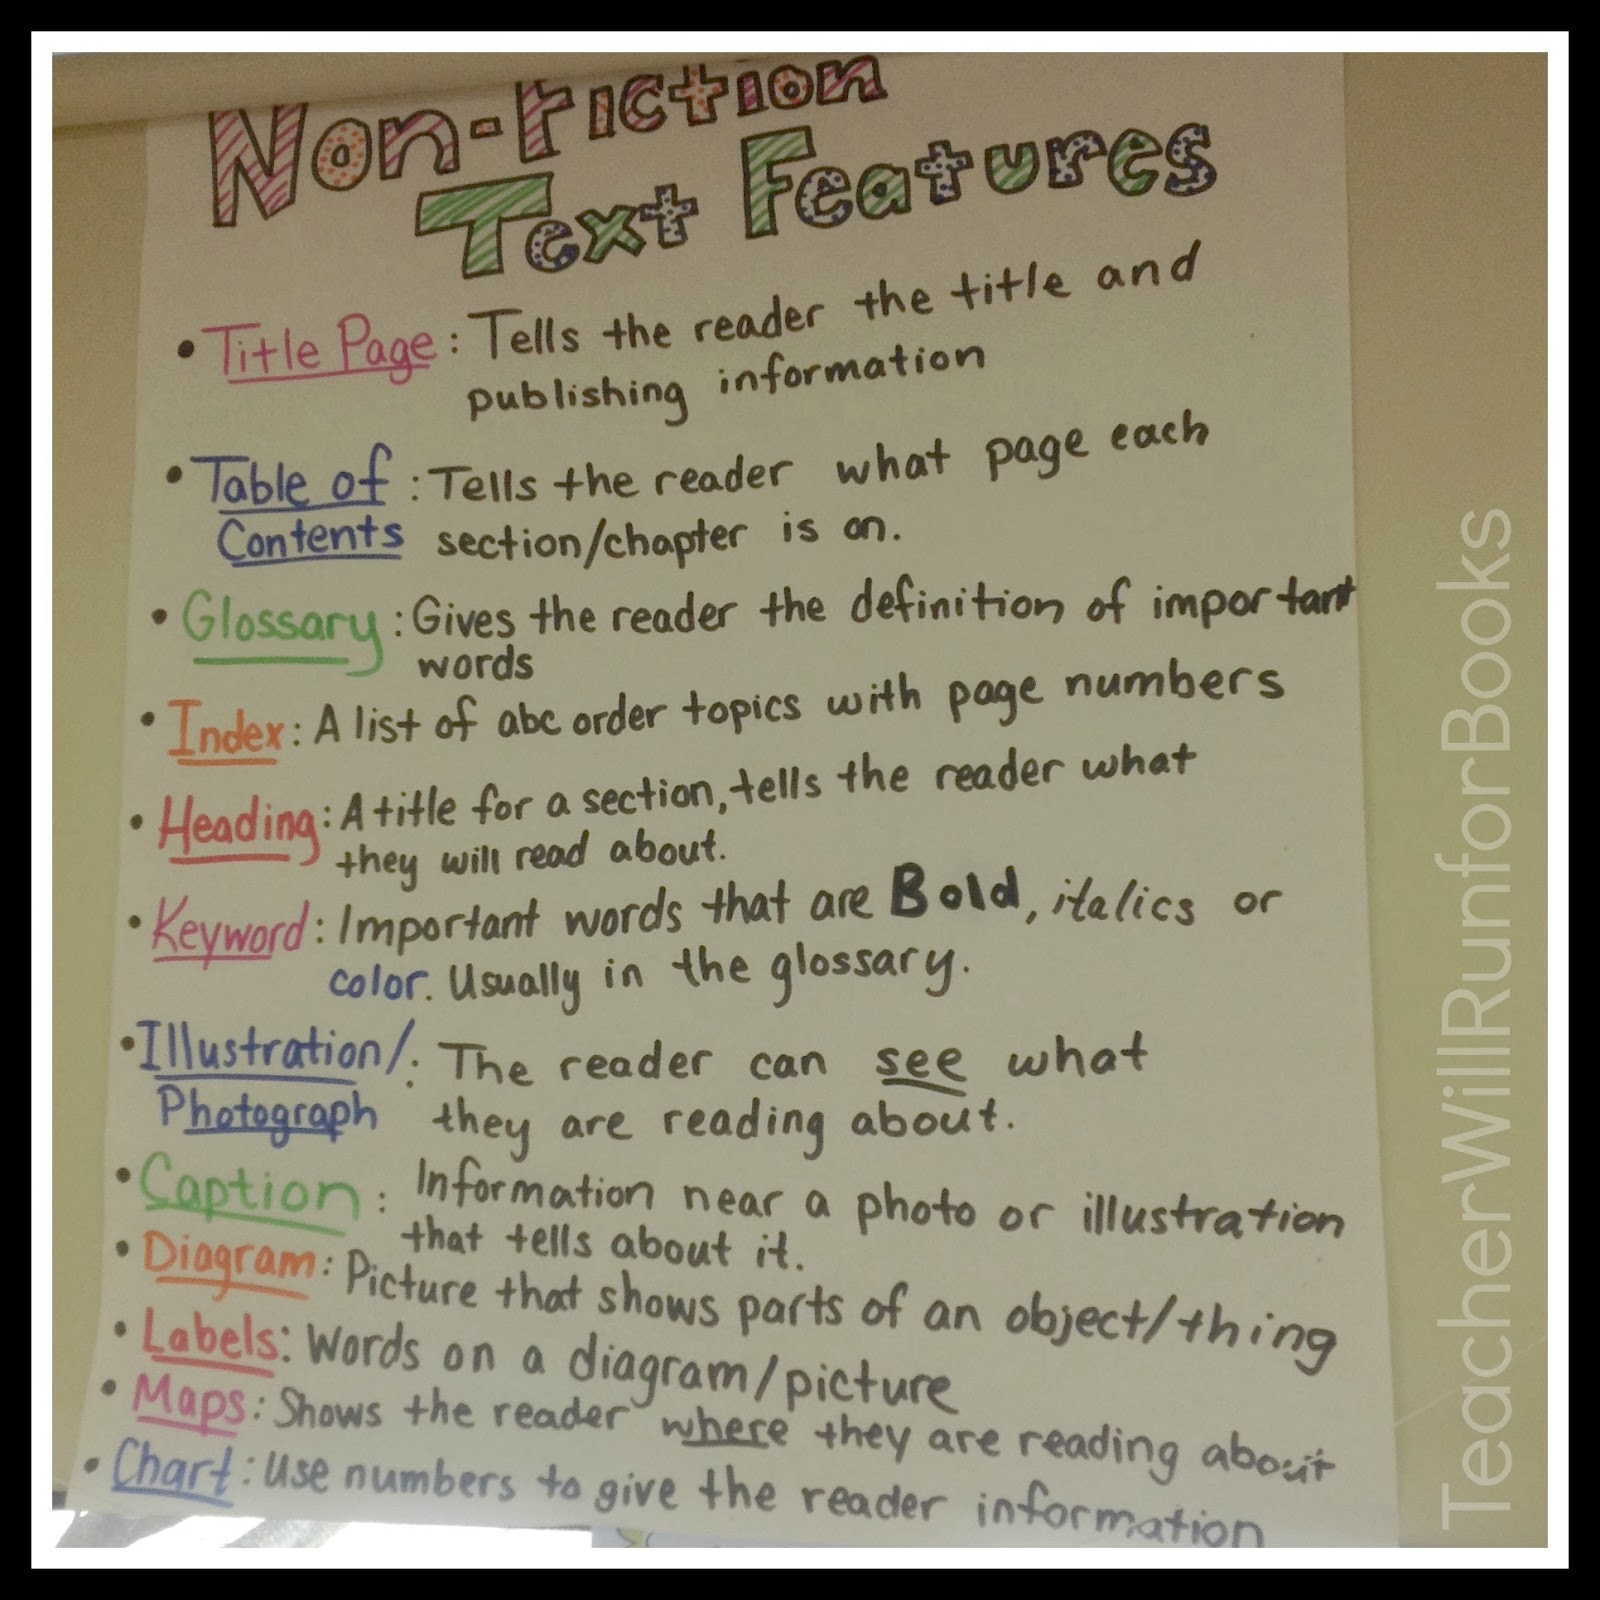 Non-Fiction
Text Features
• Title Page: Tells the reader the title and
publishing information
• Table of : Tells the reader what page each
Contents section/chapter is on.
• Glossary: Gives the reader the definition of important
words
• Index: A list of abc order topics with page numbers
• Heading: A title for a section, tells the reader what
they will read about.
• Keyword: Important words that are Bold, italics or
color. Usually in the glossary.
• Illustration/: The reader can see what
Photograph they are reading about.
• Caption: Information near a photo or illustration
that tells about it.
• Diagram: Picture that shows parts of an object/thing
• Labels: Words on a diagram/picture
• Maps: Shows the reader where they are reading about
• Chart: Use numbers to give the reader information
TeacherWillRunforBooks